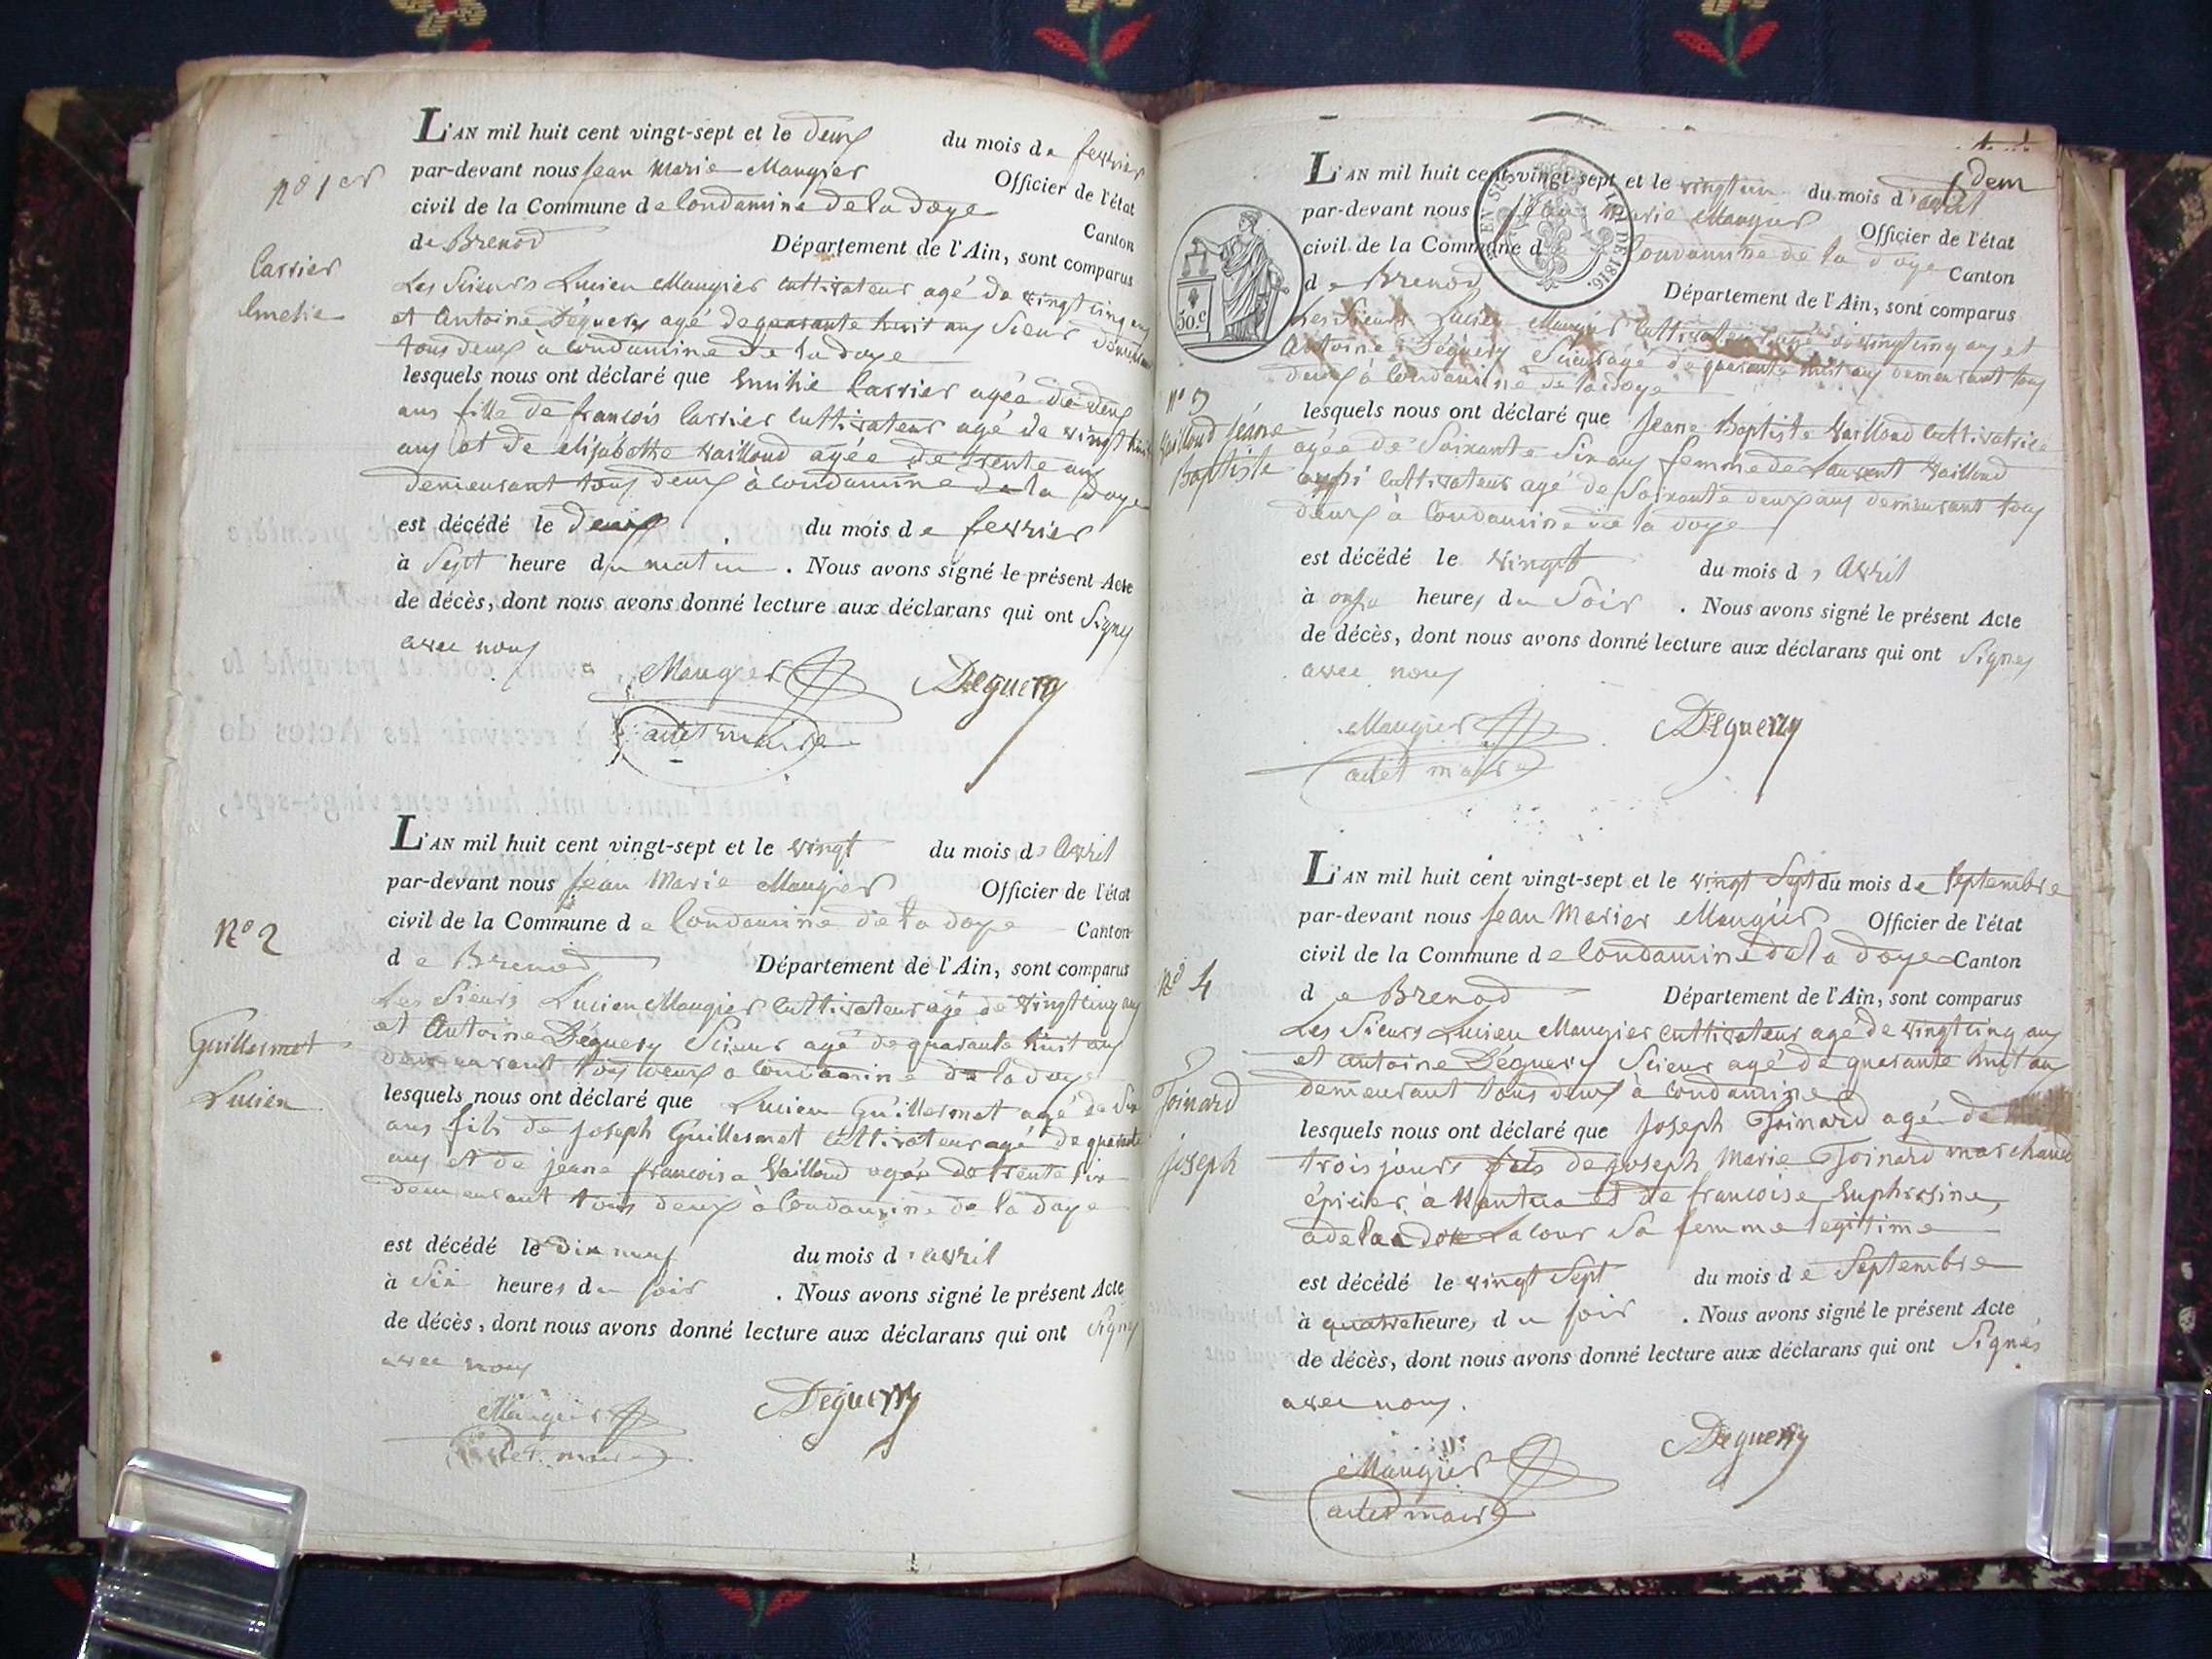 L'AN mil huit cent vingt-sept et le deux du mois de fevrier
par-devant nous Jean Marie Maugier Officier de l'état
civil de la Commune de Condamine de la doye Canton
de Brenod Département de l'Ain, sont comparus
Les Sieurs Lucien Maugier cultivateur agé de vingt cinq ans
et Antoine Déguery agé de quarante huit ans Sieur demeurant
tous deux à Condamine de la doye
lesquels nous ont déclaré que Emilie Carrier agée de deux
ans fille de françois Carrier cultivateur agé de vingt huit
ans et de elisabette Vailloud agée de trente ans
demeurant tous deux à Condamine de la doye
est décédé le deux du mois de fevrier
à Sept heure du matin . Nous avons signé le présent Acte
de décès, dont nous avons donné lecture aux déclarans qui ont Signes
avec nous
Maugier Deguerry
adet maire
n° 1er
Carrier
Emelie
L'AN mil huit cent vingt-sept et le vingt du mois d' Avril
par-devant nous Jean Marie Maugier Officier de l'état
civil de la Commune de Condamine de la doye Canton
de Brenod Département de l'Ain, sont comparus
Les Sieurs Lucien Maugier cultivateur agé de vingt cinq ans
et Antoine Déguery Scieur agé de quarante huit ans
demeurant tous deux a Condamine de la doye
lesquels nous ont déclaré que Lucien Guillermet agé de Six
ans fils de Joseph Guillermet cultivateur agé de quarante
ans et de jeanne francoise Vailloud agée de trente six
demeurant tous deux à Condamine de la doye
est décédé le dix neuf du mois d' avril
à Six heures du soir . Nous avons signé le présent Acte
de décès, dont nous avons donné lecture aux déclarans qui ont Signes
avec nous
Maugier Deguerry
adet maire
N° 2
Guillermet
Lucien
L'AN mil huit cent vingt-sept et le vingt un du mois d' avril
par-devant nous Jean Marie Maugier Officier de l'état
civil de la Commune d Condamine de la doye Canton
de Brenod Département de l'Ain, sont comparus
50.c
DE 1816.
Les Sieurs Lucien Maugier Cultivateur agé de vingt cinq ans et
Antoine Déguery Scieur agé de quarante huit ans demeurant tous
deux à Condamine de la doye
lesquels nous ont déclaré que Jeane Baptiste Vailloud Cultivatrice
agée de Soixante Six ans femme de Laurent Vailloud
aussi cultivateur agé de Soixante deux ans demeurant tous
deux à Condamine de la doye
est décédé le vingt du mois d' Avril
à onze heures du Soir . Nous avons signé le présent Acte
de décès, dont nous avons donné lecture aux déclarans qui ont Signes
avec nous
Maugier Deguerry
adet maire
n° 3
Vailloud Jéane
Baptiste
L'AN mil huit cent vingt-sept et le vingt Sept du mois de Septembre
par-devant nous Jean Marier Maugier Officier de l'état
civil de la Commune de Condamine de la doye Canton
de Brenod Département de l'Ain, sont comparus
Les Sieurs Lucien Maugier cultivateur agé de vingt cinq ans
et Antoine Déguery Scieur agé de quarante huit ans
demeurant tous deux à Condamine
lesquels nous ont déclaré que Joseph Joinard agé de
trois jours fils de Joseph Marie Joinard marchand
épicier à Nantua et de francoise Euphrosine,
Lacour sa femme legitime
est décédé le vingt Sept du mois de Septembre
à quatre heures du soir . Nous avons signé le présent Acte
de décès, dont nous avons donné lecture aux déclarans qui ont Signés
avec nous.
Maugier Deguerry
adet maire
N° 4
Joinard
Joseph